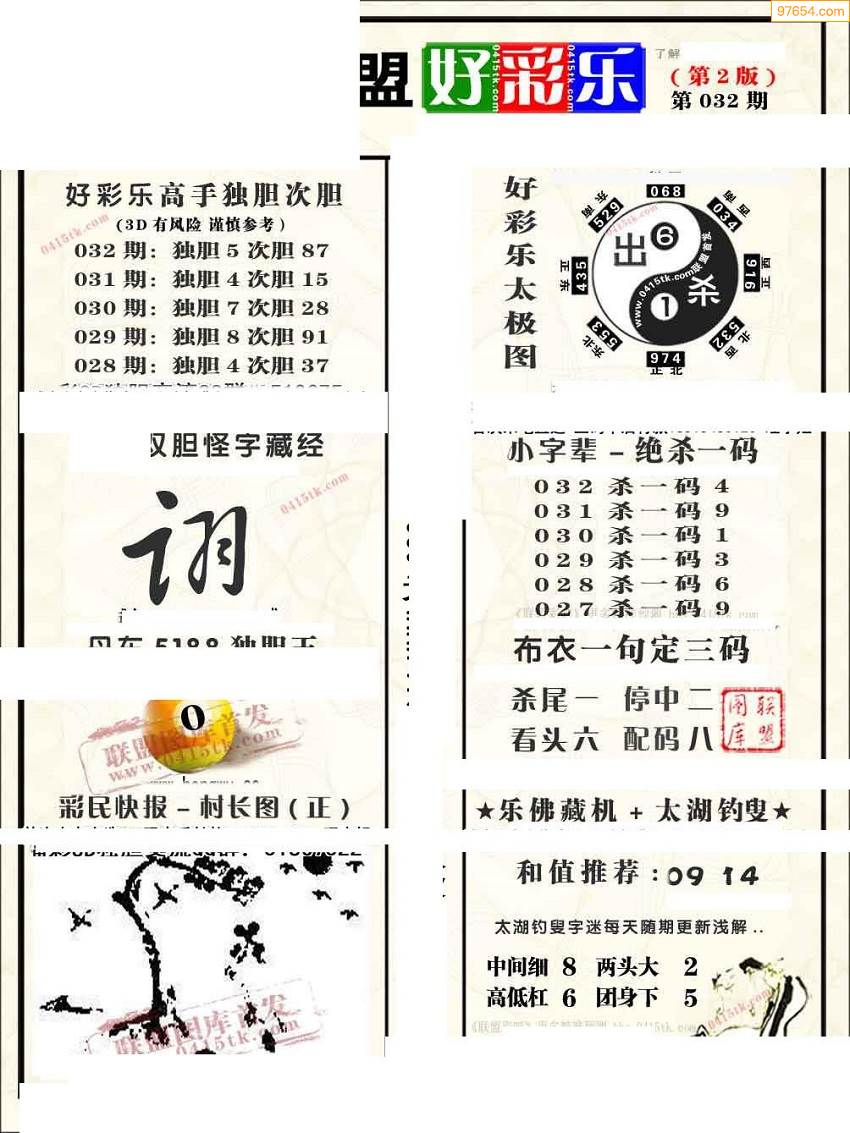 97654.com
盟 好彩乐
0415tk.com
0415tk.com
了解
(第2版)
第 032 期
好彩乐高手独胆次胆
(3D有风险 谨慎参考)
0415tk.com
032 期: 独胆 5 次胆 87
031 期: 独胆 4 次胆 15
030 期: 独胆 7 次胆 28
029 期: 独胆 8 次胆 91
028 期: 独胆 4 次胆 37
好彩乐太极图
068
东南 529
西南 034
正东 435
正西 916
东北 553
西北 532
974
正北
出 6
1 杀
www.0415tk.com联盟首发
0415tk.com
双胆怪字藏经
0415tk.com
诩
丹东 5188 独胆王
0
联盟图库首发
www.0415tk.com
小字辈 – 绝杀一码
032 杀一码 4
031 杀一码 9
030 杀一码 1
029 杀一码 3
028 杀一码 6
027 杀一码 9
布衣一句定三码
杀尾一 停中二
看头六 配码八
联盟图库
彩民快报 – 村长图 (正)
联盟图库首发
0415tk.com
★乐佛藏机 + 太湖钓叟★
和值推荐 : 09 14
太湖钓叟字迷每天随期更新浅解 ..
中间细 8 两头大 2
高低杠 6 团身下 5
0415tk.com